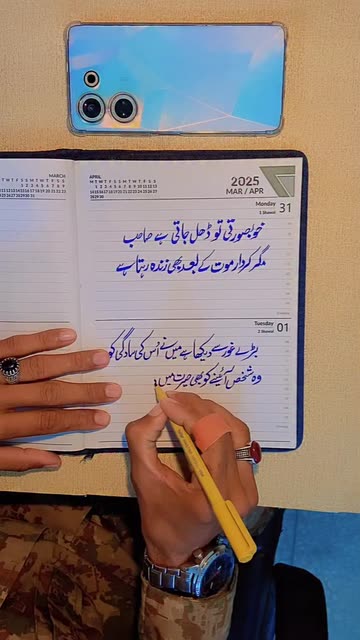 MARCH
APRIL
2025
MAR / APR
Monday
2 Shawwal
31
خوبصورتی تو ڈھل جاتی ہے صاحب
مگر کردار موت کے بعد بھی زندہ رہتا ہے
Tuesday
01
بڑے غور سے دیکھا ہے میں نے اُس کی سادگی کو
وہ شخص آئینے کو بھی حیرت میں